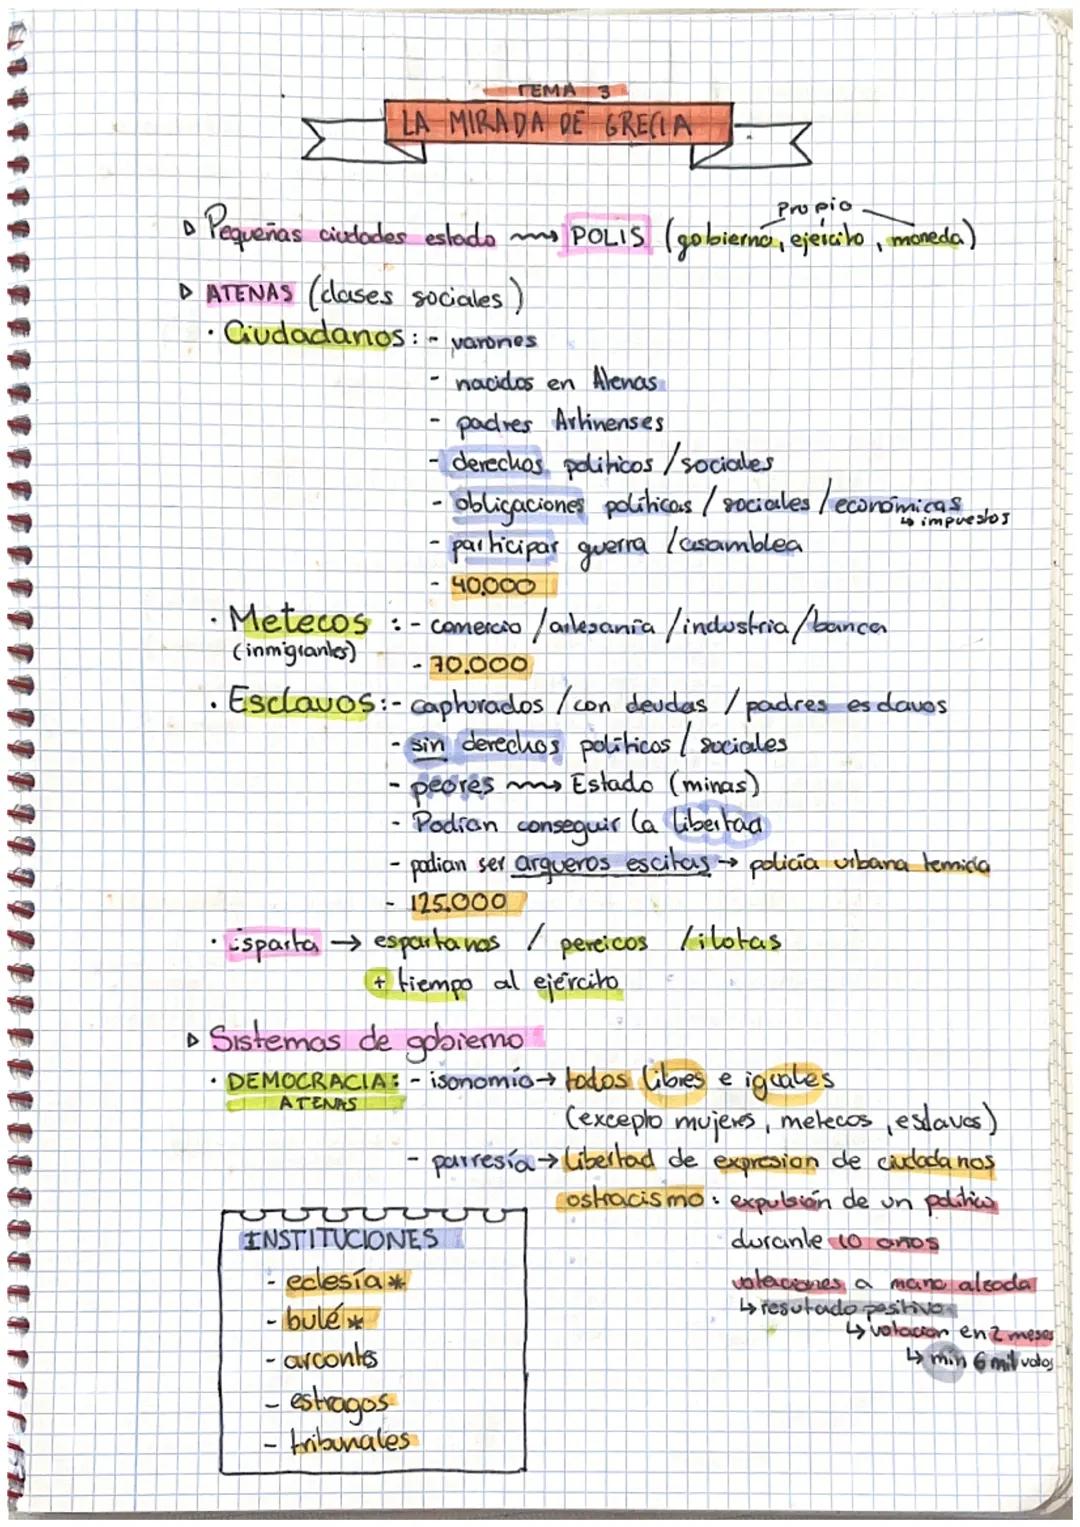 TEMA 3
LA MIRADA DE GRECIA
Propio
▷ Pequeñas ciudades estado ⟿ POLIS (gobierno, ejército, moneda)
▷ ATENAS (clases sociales)
· Ciudadanos: - varones
- nacidos en Atenas
- padres Artinenses
- derechos políticos / sociales
- obligaciones políticas / sociales / económicas
↳ impuestos
- participar guerra / asamblea
- 40.000
· Metecos : - comercio / artesanía / industria / banca
(inmigrantes)
- 70.000
· Esclavos: - capturados / con deudas / padres esclavos
- sin derechos políticos / sociales
- peores ⟿ Estado (minas)
- Podían conseguir la libertad
- podian ser arqueros escitas → policía urbana temida
- 125.000
· Esparta → espartanos / pereicos / ilotas
+ tiempo al ejército
▷ Sistemas de gobierno
· DEMOCRACIA: - isonomía → todos libres e iguales
ATENAS
(excepto mujeres, metecos, eslavos)
- parresía → libertad de expresion de ciudadanos
ostracismo: expulsión de un político
durante 10 años
votaciones a mano alzada
↳ resutado positivo
↳ votacion en 2 meses
↳ min 6 mil votos
INSTITUCIONES
- eclesía *
- bulé *
- arcontes
- estragos
- tribunales